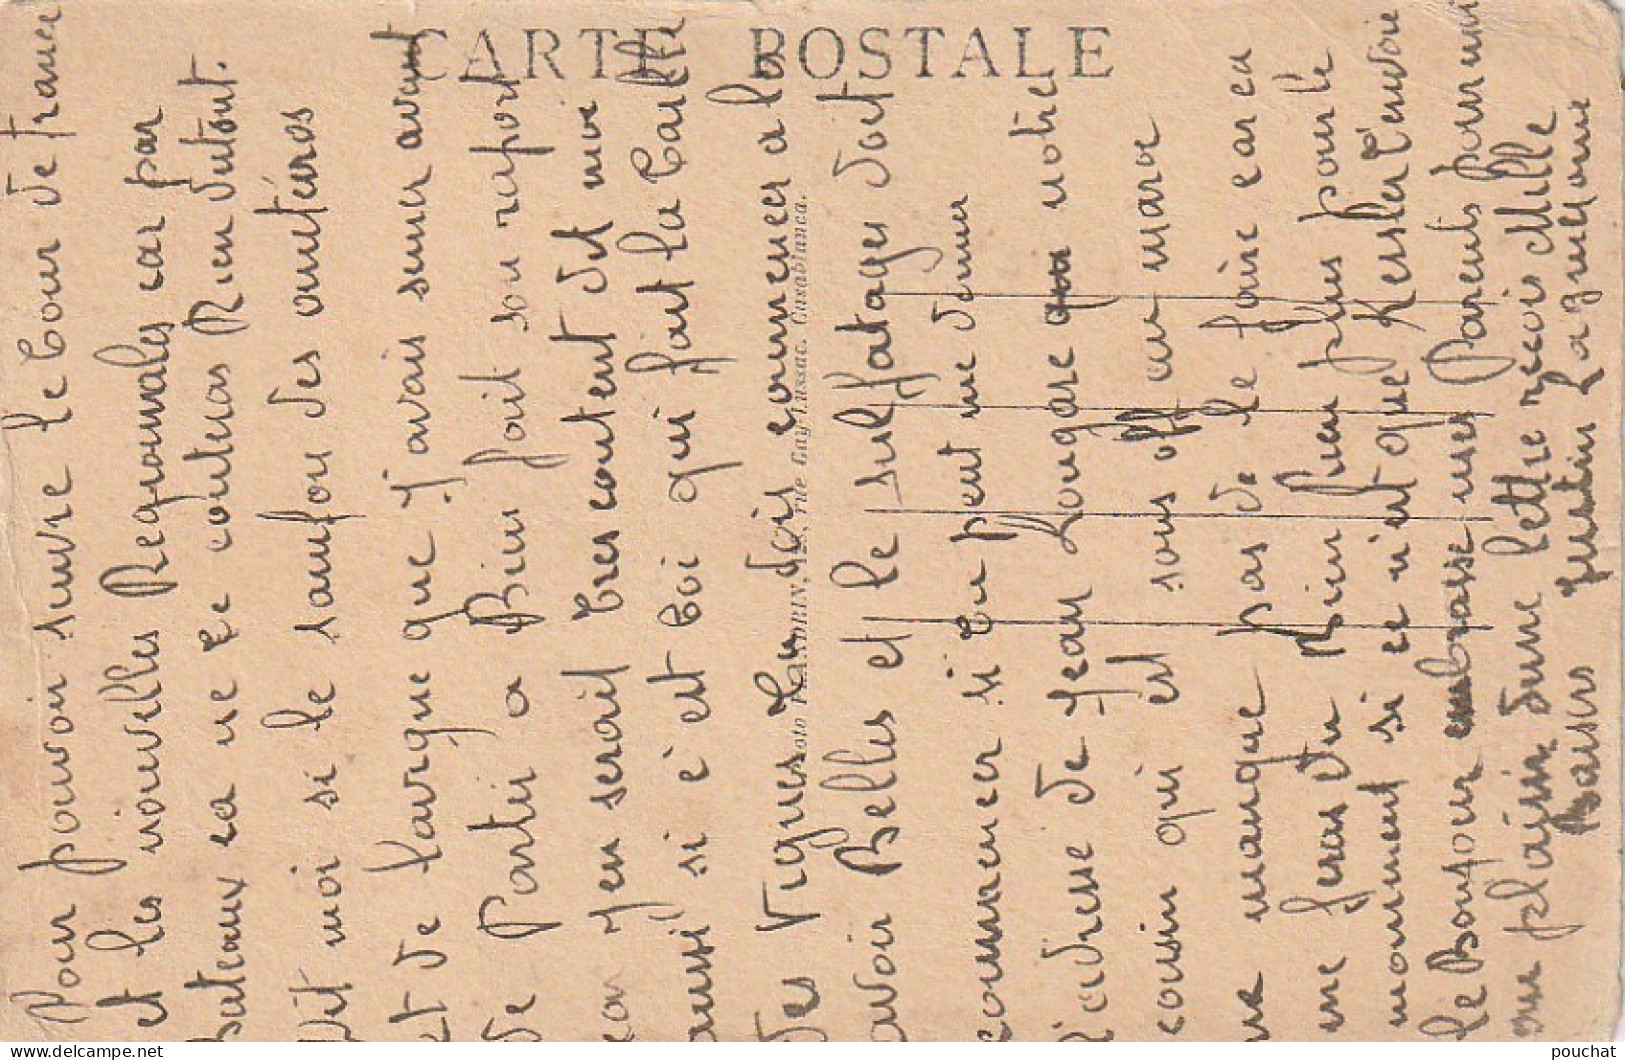 CARTE POSTALE
Pour pouvoir suivre le Tour de France
et les nouvelles Regionnales car par
Bateaux sa ne te couteras Rien dutout.
Dit moi si le sainfoin des
et de Largue que J'avais semer avant
de Partir a Bien fait son raport
car J'en serait tres content dit moi
aussi si c'est toi qui fait la taille
des Vignes tu dois commencer a la
avoir Belles et le sulfatages doit
commencer si tu peut me donner
l'adresse de Jean notre
cousin qui est sous off au maroc
ne manque pas de le faire car ca
me feras du Bien plus pour le
momment si ce n'est que Kesler t'envoie
le Bonjour embrasse mes Parents pour moi
en plaisir dune lettre recois Mille
Baisers Justin Laguelonne
Photo FLANDRIN, rue Gay-Lussac. Casablanca.
pouchat